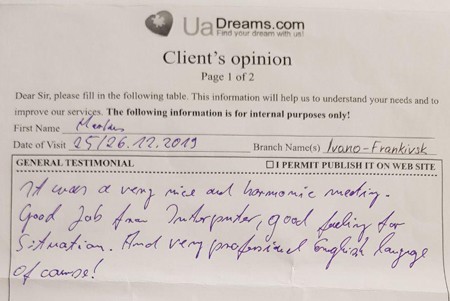 UaDreams.com
Find your dream with us!
Client's opinion
Page 1 of 2
Dear Sir, please fill in the following table. This information will help us to understand your needs and to
improve our services. The following information is for internal purposes only!
First Name
Date of Visit 25/26.12.2019 Branch Name(s) Ivano-Frankivsk
GENERAL TESTIMONIAL ☐ I PERMIT PUBLISH IT ON WEB SITE
It was a very nice and harmonic meeting.
Good Job from Interpreter, good feeling for
Situation. And very professional English
of course!